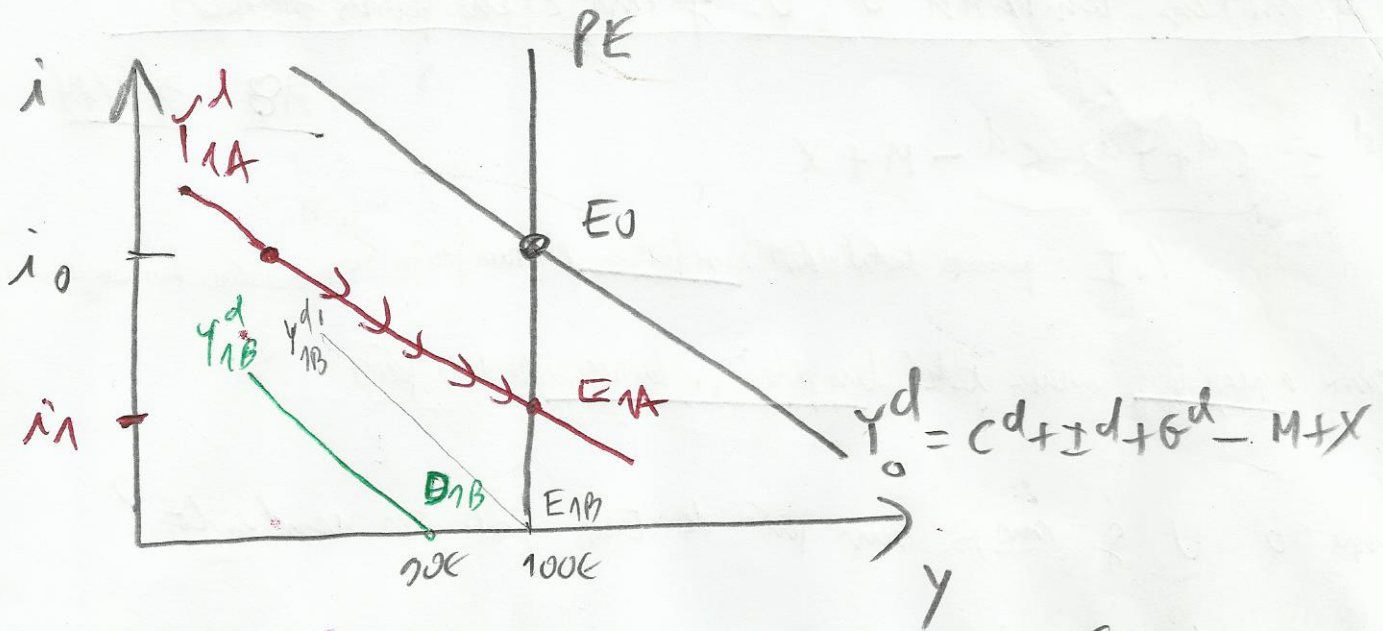 PE
i
Y^d_1A
E0
i_0
Y^d_1B
Y^d'_1B
E1A
i_1
Y^d_0 = C^d + I^d + G^d - M + X
D1B
E1B
90€
100€
Y